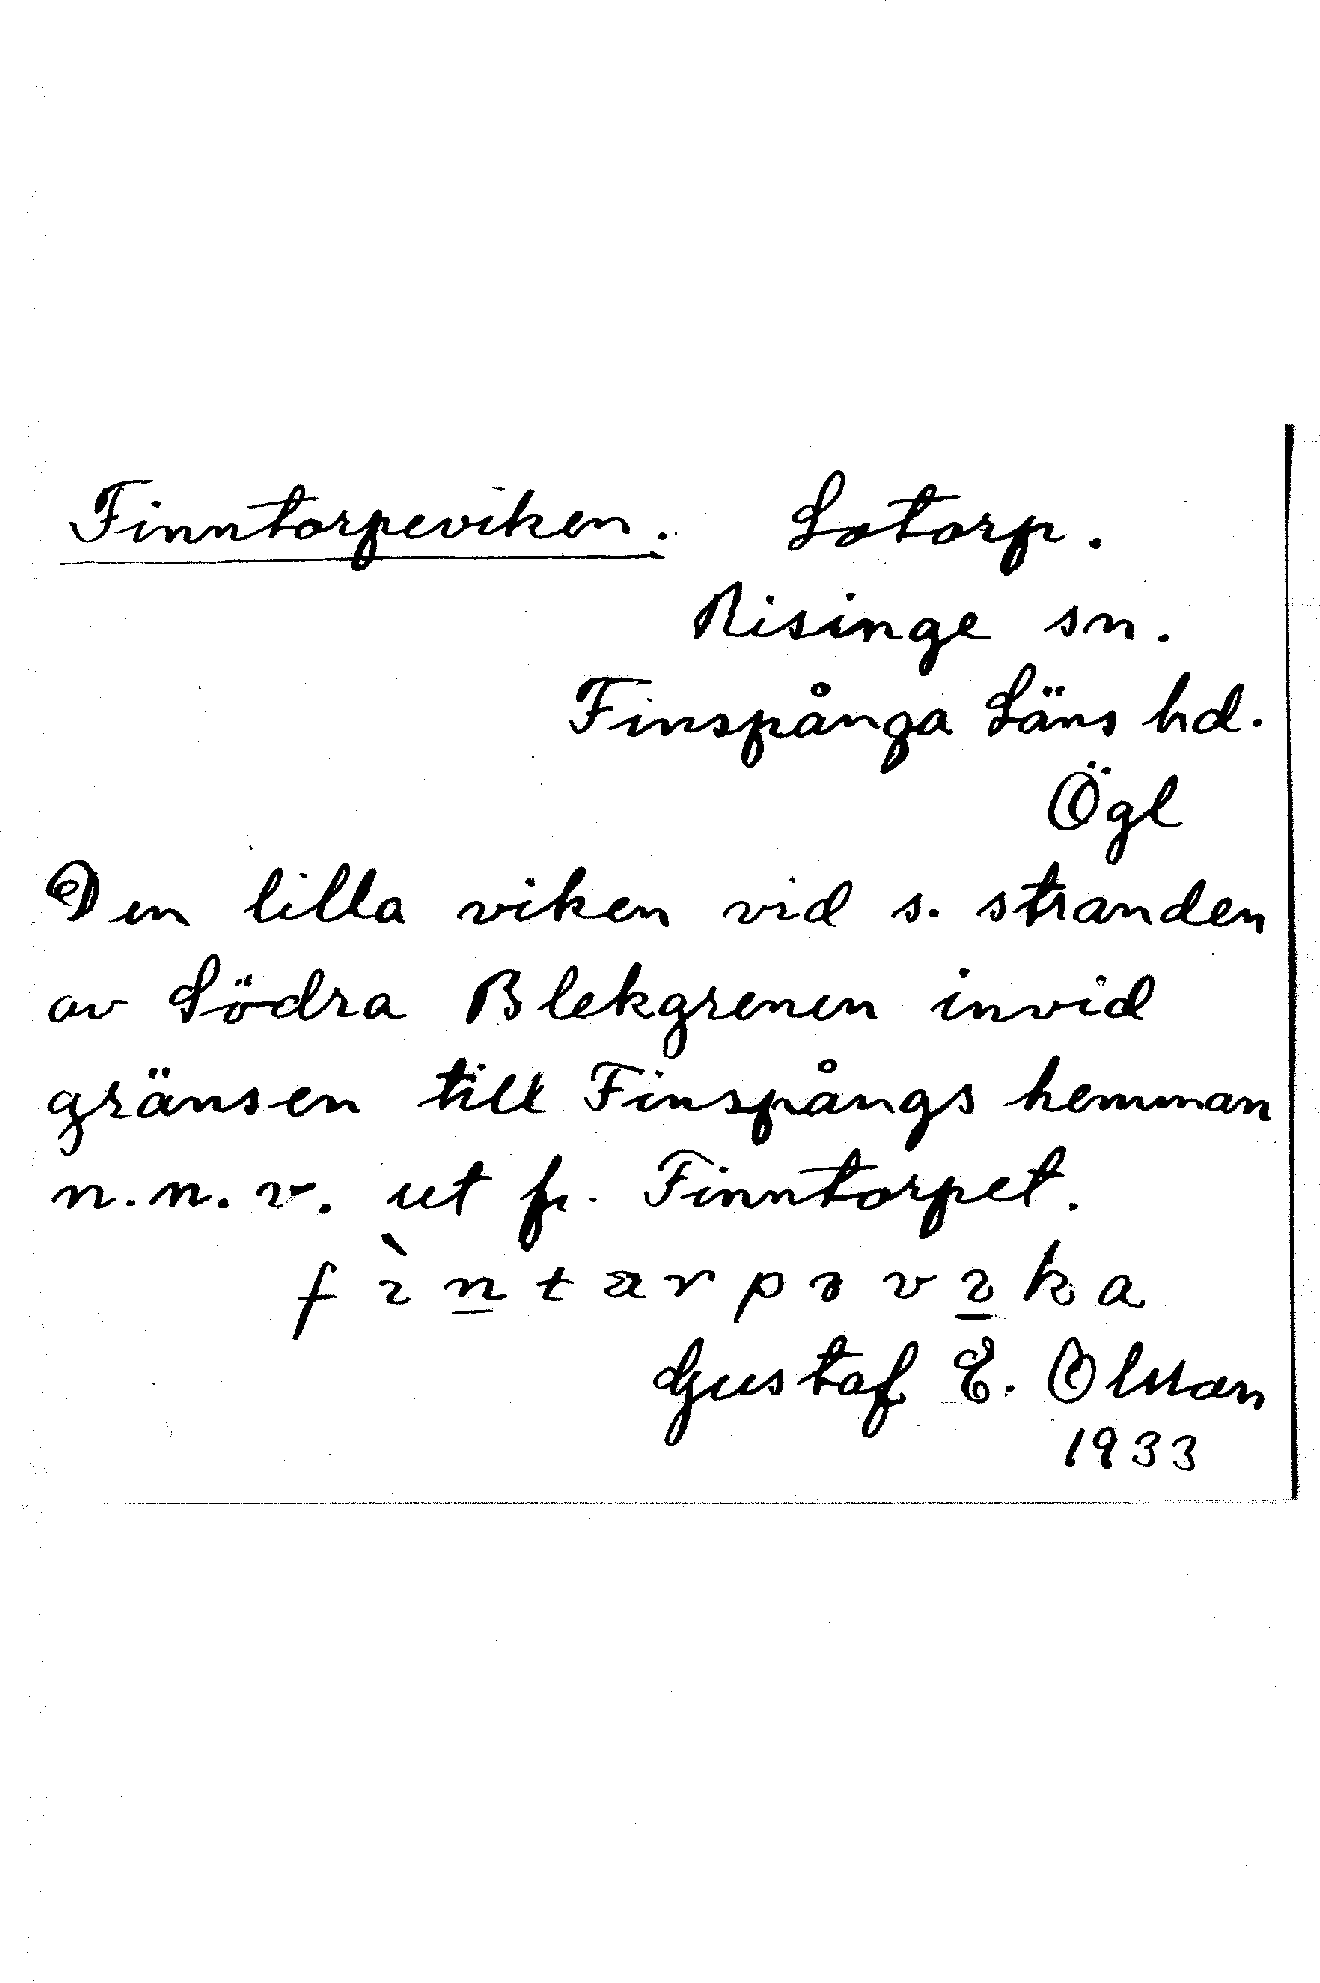 Finntorpeviken. Lotorp.
Risinge sn.
Finspånga Läns hd.
Ögl
Den lilla viken vid s. stranden
av Södra Blekgrenen invid
gränsen till Finspångs hemman
n.n.v. ut fr. Finntorpet.
fìntarpəvika
Gustaf E. Olsson
1933